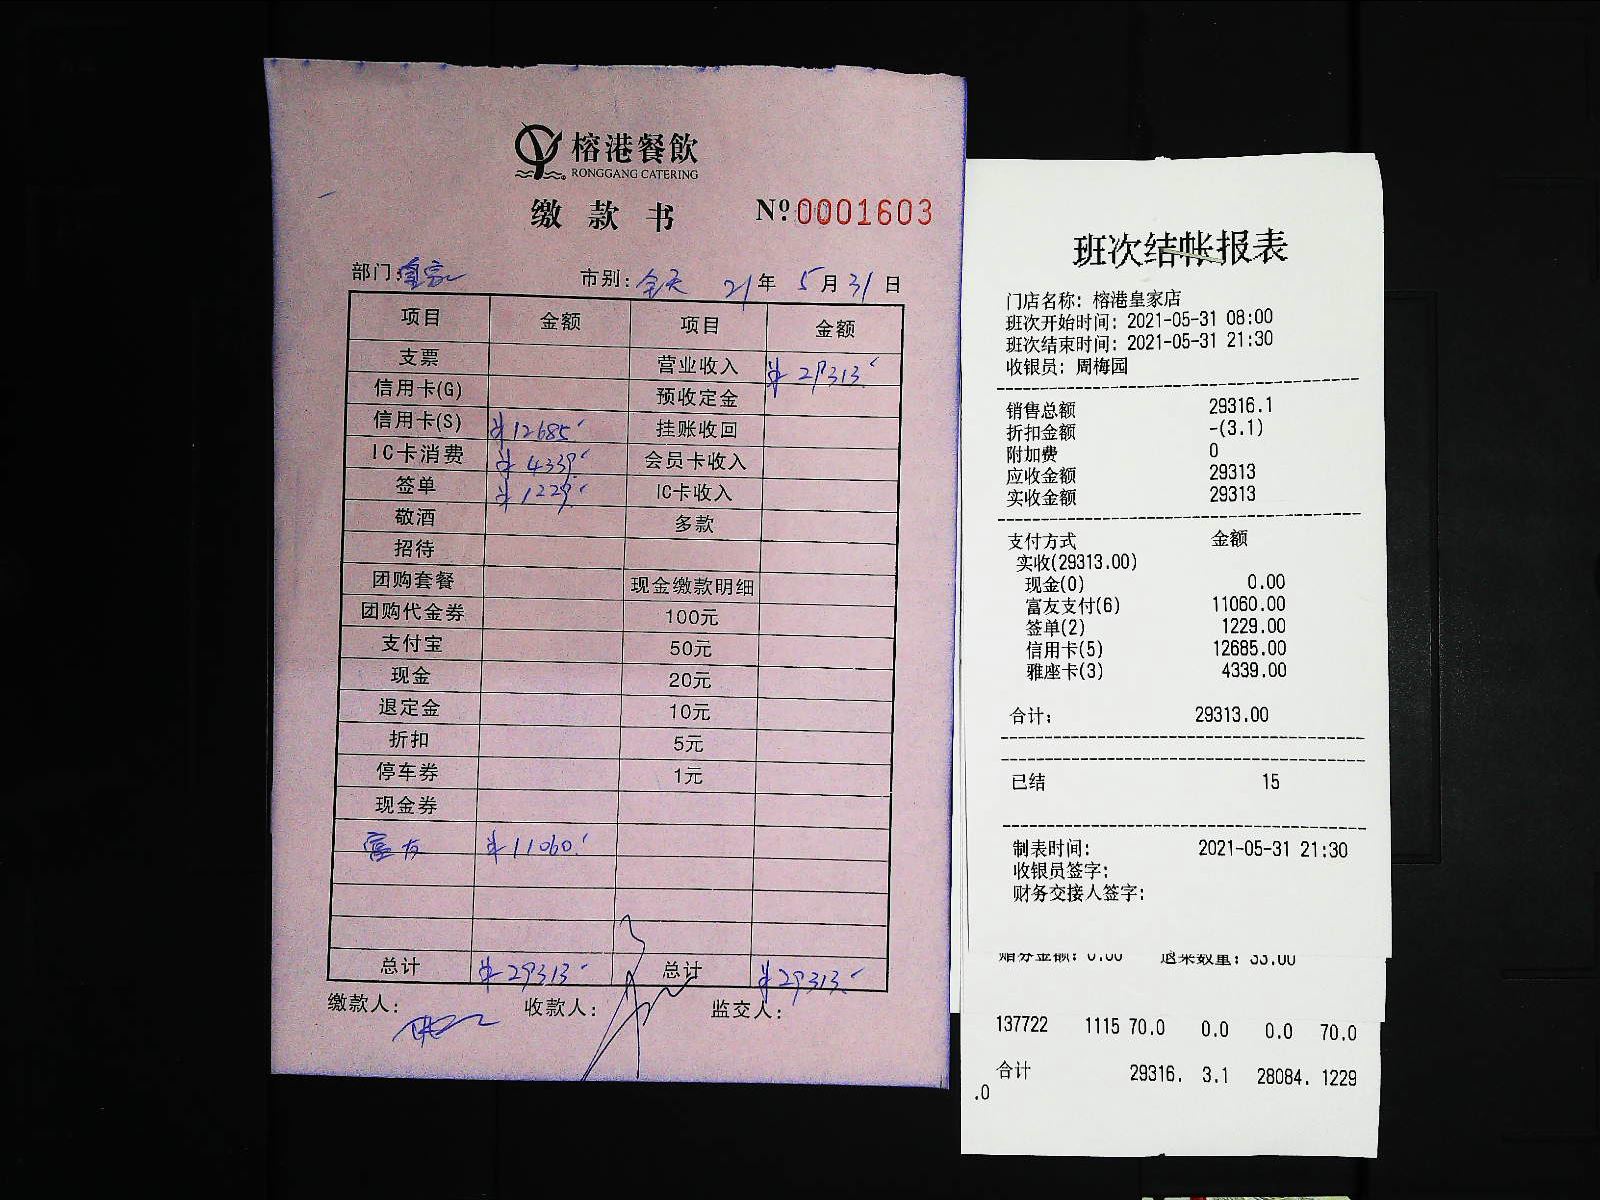 榕港餐飲
RONGGANG CATERING
缴款书 Nº 0001603
部门: 皇家 市别: 全天 21年 5月31日
项目 金额 项目 金额
支票 营业收入 ¥29313
信用卡(G) 预收定金
信用卡(S) ¥12685 挂账收回
IC卡消费 ¥4339 会员卡收入
签单 ¥1229 IC卡收入
敬酒 多款
招待
团购套餐 现金缴款明细
团购代金券 100元
支付宝 50元
现金 20元
退定金 10元
折扣 5元
停车券 1元
现金券
富友 ¥11060
总计 ¥29313 总计 ¥29313
缴款人: 收款人: 监交人:
班次结帐报表
门店名称: 榕港皇家店
班次开始时间: 2021-05-31 08:00
班次结束时间: 2021-05-31 21:30
收银员: 周梅园
销售总额 29316.1
折扣金额 -(3.1)
附加费 0
应收金额 29313
实收金额 29313
支付方式 金额
实收(29313.00)
现金(0) 0.00
富友支付(6) 11060.00
签单(2) 1229.00
信用卡(5) 12685.00
雅座卡(3) 4339.00
合计: 29313.00
已结 15
制表时间: 2021-05-31 21:30
收银员签字:
财务交接人签字:
赠券金额: 0.00 退菜数量: 33.00
137722 1115 70.0 0.0 0.0 70.0
合计 29316. 3.1 28084. 1229
.0